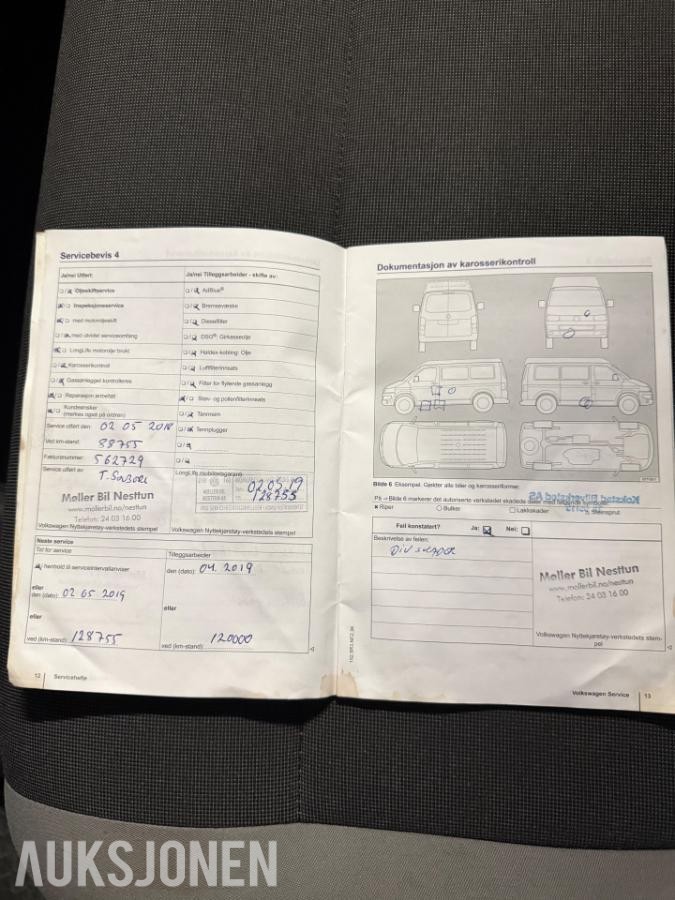 Servicebevis 4
Ja/nei Utført:
Ja/nei Tilleggsarbeider - skifte av:
Oljeskiftservice
AdBlue®
Inspeksjonsservice
Bremsevæske
med motoroljeskift
Dieselfilter
med utvidet serviceomfang
DSG® Girkasseolje
LongLife motorolje brukt
Haldex-kobling: Olje
Karosserikontroll
Luftfilterinnsats
Gassanlegget kontrolleres
Filter for flytende gassanlegg
Reparasjon anbefalt
Støv- og pollenfilterinnsats
Rundsensker
(merkes også på ordren)
Tannrem
Service utført den: 02 05 2018
Tennplugger
Ved km-stand: 88755
Fakturanummer: 562729
Service utført av:
LongLife mobilitetsgaranti
02.05.19
128755
Møller Bil Nesttun
www.mollerbil.no/nesttun
Telefon: 24 03 16 00
Volkswagen Nyttekjøretøy-verkstedets stempel
Volkswagen Nyttekjøretøy-verkstedets stempel
Neste service
Tid for service
Tilleggsarbeider
i henhold til serviceintervallanviser
den (dato): 04. 2019
eller
den (dato): 02 05 2019
eller
eller
ved (km-stand): 128755
ved (km-stand): 120000
12 Servicehefte
Dokumentasjon av karosserikontroll
Bilde 6 Eksempel. Gjelder alle biler og karosseriformer.
På → Bilde 6 markerer det autoriserte verkstedet skadede deler med følgende symboler:
Riper
Bulker
Lakkskader
Steinsprut
Feil konstatert?
Ja:
Nei:
Beskrivelse av feilen:
Div skraper
Møller Bil Nesttun
www.mollerbil.no/nesttun
Telefon: 24 03 16 00
Volkswagen Nyttekjøretøy-verkstedets stem-
pel
Volkswagen Service 13
AUKSJONEN